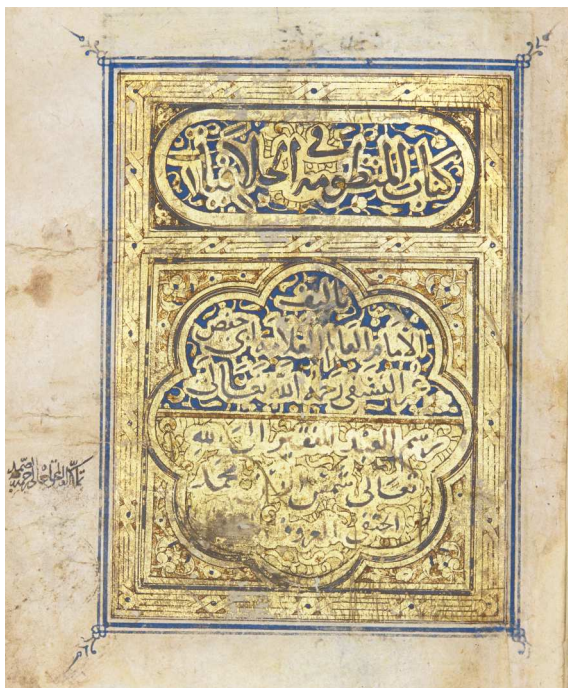 كتاب المنظومة في الخلافيات
تأليف
الامام العالم العلامة ابى حفص
عمر النسفى رحمه الله تعالى
برسم العبد الفقير الى الله
تعالى شمس الدين محمد
الحنفى المعروف